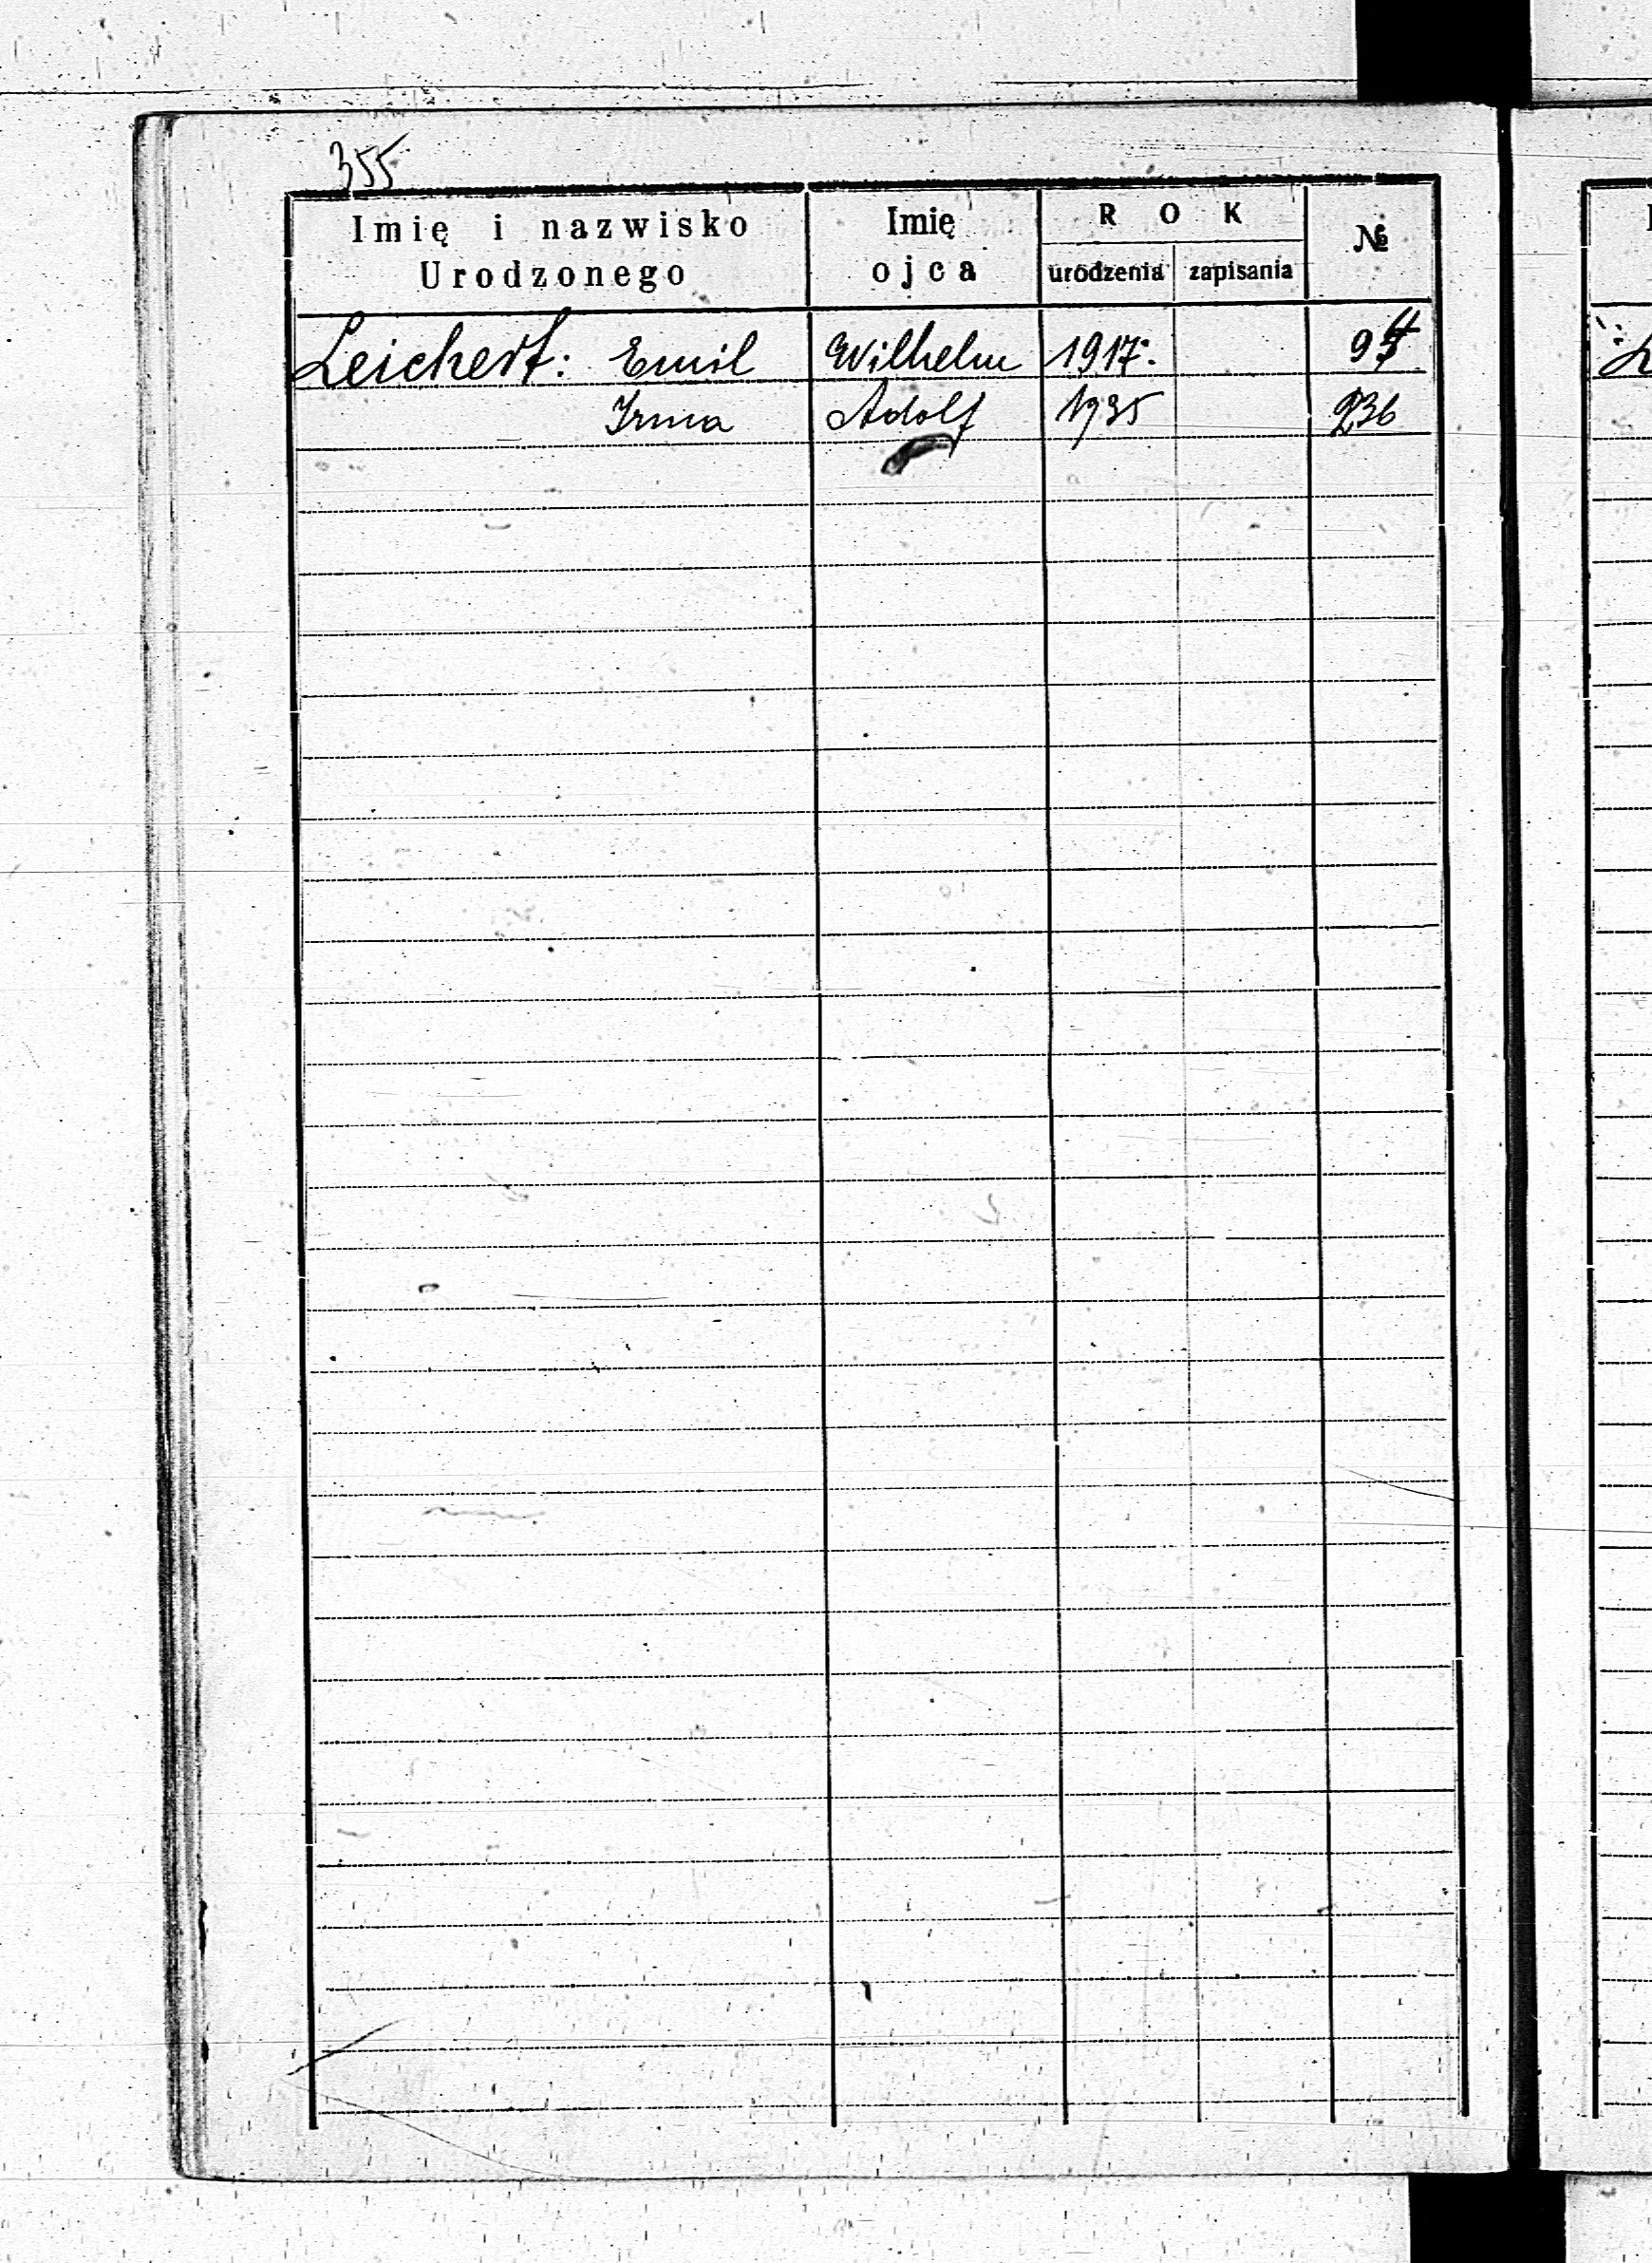 355
Imię i nazwisko Urodzonego Imię ojca ROK urodzenia zapisania №
Leichert: Emil Wilhelm 1917.
Irma Adolf 1935 236